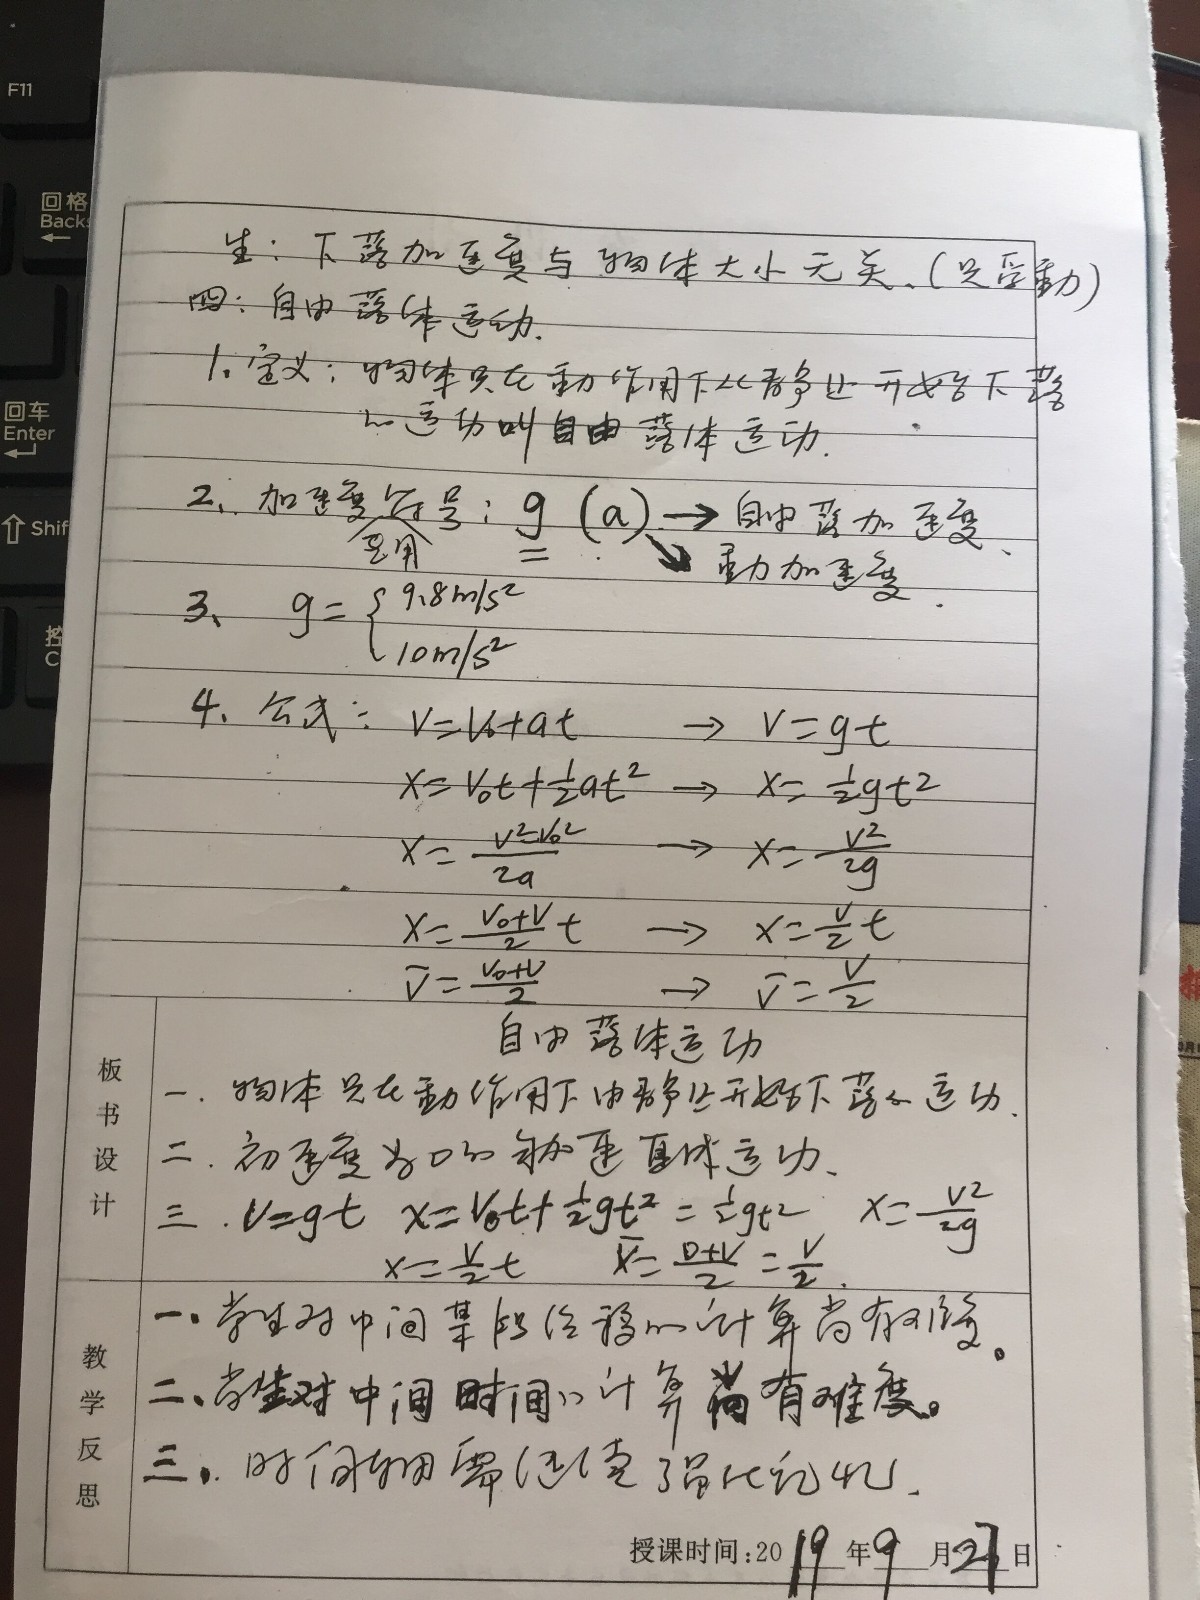 F11
回格
Backs
←
回车
Enter
Shif
控
C
生：下落加速度与物体大小无关.（只受重力）
四：自由落体运动.
1. 定义：物体只在重力作用下从静止开始下落
的运动叫自由落体运动.
2. 加速度符号：g (a) → 自由落加速度、
专用 重力加速度.
3、 g = { 9.8m/s²
10m/s²
4、公式： V=V₀+at → V=gt
X=V₀t+½at² → X=½gt²
X=(V²-V₀²)/2a → X=V²/2g
X=(V₀+V)/2 t → X=V/2 t
V̄=(V₀+V)/2 → V̄=V/2
板书设计
自由落体运动
一. 物体只在重力作用下由静止开始下落的运动.
二. 初速度为0的匀加速直线运动.
三. V=gt X=V₀t+½gt²=½gt² X=V²/2g
X=V/2 t V̄=(0+V)/2=V/2.
教学反思
一. 学生对中间某段位移的计算尚有难度。
二. 学生对中间时间的计算尚有难度。
三. 时间轴需强化记忆.
授课时间:2019年9月27日